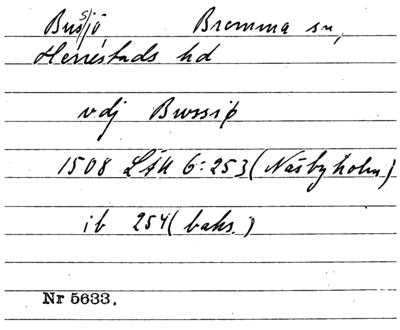 Bussjö Bromma sn,
Herrestads hd
vdj Bwssiø
1508 LÅU 6:253 (Näsbyholm)
ib 254 (baks.)
Nr 5633.